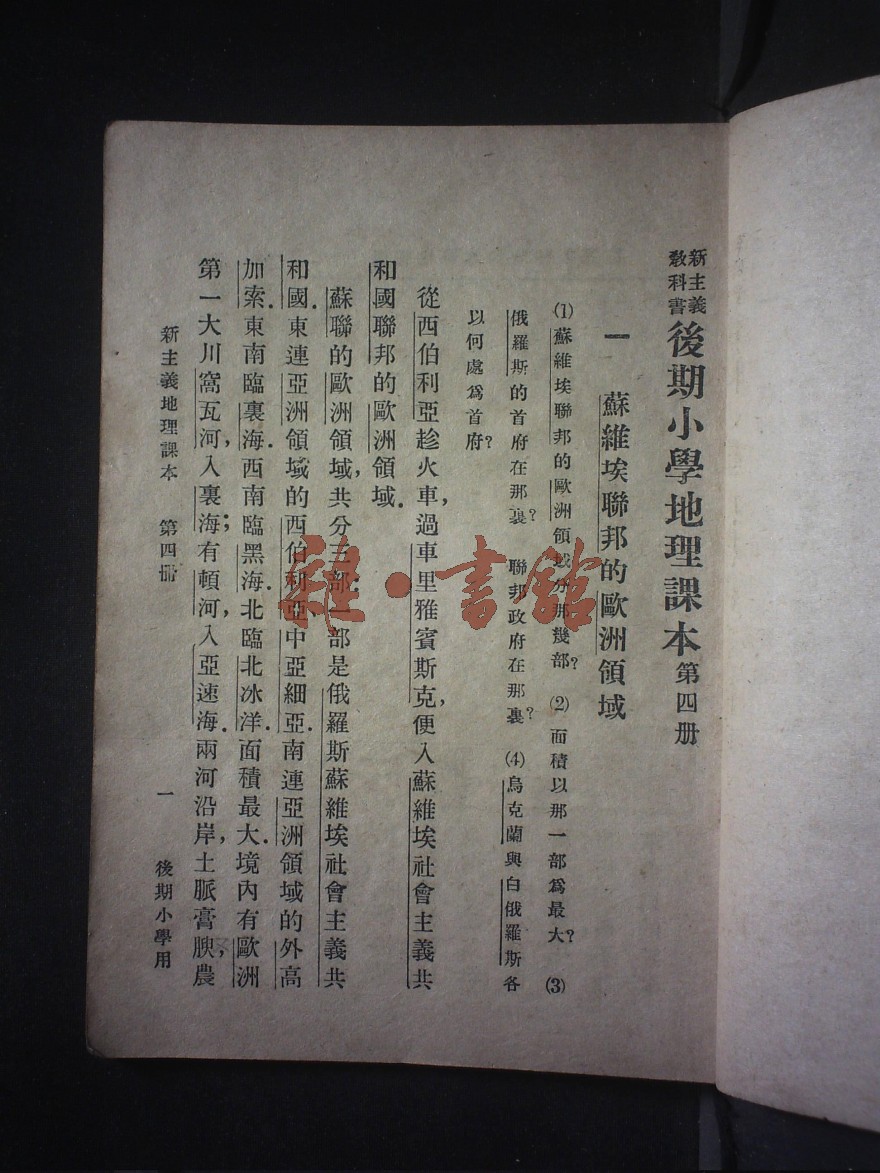 新主義教科書 後期小學地理課本 第四册
一 蘇維埃聯邦的歐洲領域
(1)蘇維埃聯邦的歐洲領域分那幾部? (2)面積以那一部爲最大? (3)
俄羅斯的首府在那裏? 聯邦政府在那裏? (4)烏克蘭與白俄羅斯各
以何處爲首府?
從西伯利亞趁火車,過車里雅賓斯克,便入蘇維埃社會主義共
和國聯邦的歐洲領域.
蘇聯的歐洲領域,共分三部:一部是俄羅斯蘇維埃社會主義共
和國.東連亞洲領域的西伯利亞、中亞細亞.南連亞洲領域的外高
加索.東南臨裏海.西南臨黑海.北臨北冰洋.面積最大.境內有歐洲
第一大川窩瓦河,入裏海;有頓河,入亞速海.兩河沿岸,土脈膏腴,農
新主義地理課本 第四册 一 後期小學用
雜·書館